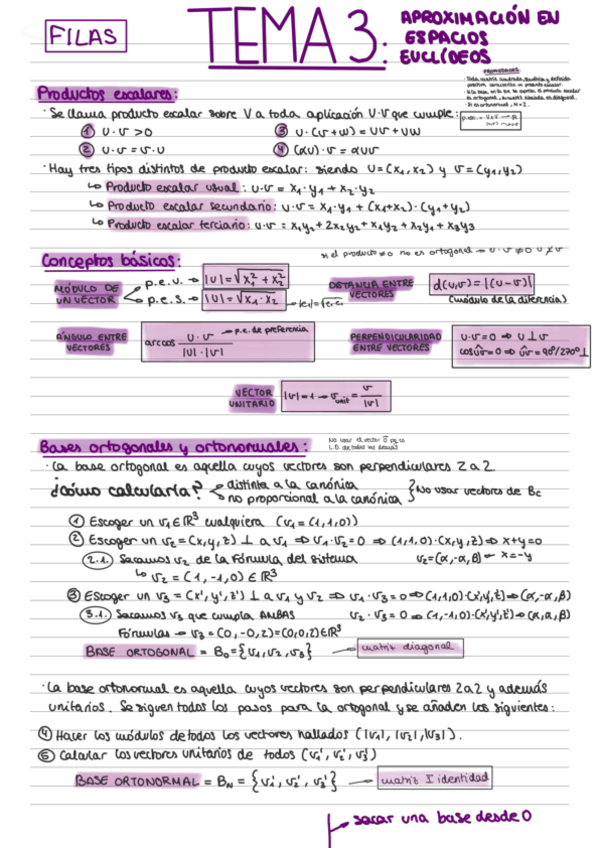 FILAS
TEMA 3:
APROXIMACIÓN EN
ESPACIOS
EUCLÍDEOS
Productos escalares:
· Se llama producto escalar sobre V a toda aplicación U·v que cumple:
① U·v > 0
③ U·(v+w) = Uv + UW
② U·v = v·U
④ (αU)·v = αUv
· Hay tres tipos distintos de producto escalar: siendo U=(x1,x2) y v=(y1,y2)
↳ Producto escalar usual: U·v = x1·y1 + x2·y2
↳ Producto escalar secundario: U·v = x1·y1 + (x1+x2)·(y1+y2)
↳ Producto escalar terciario: U·v = x1y1 + 2x2y2 + x1y2 + x2y1 + x3y3
Conceptos básicos:
si el producto ≠ 0 no es ortogonal
MÓDULO DE
UN VECTOR
p.e.u. → |U| = √x1² + x2²
p.e.s. → |U| = √x1·x2
DISTANCIA ENTRE
VECTORES
d(U,v) = |(U-v)|
(módulo de la diferencia)
ÁNGULO ENTRE
VECTORES
arccos U·v / |U|·|v| → p.e. de preferencia
PERPENDICULARIDAD
ENTRE VECTORES
U·v = 0 ⇒ U⊥v
cos Uv = 0 ⇒ Uv = 90º/270º ⊥
VECTOR
UNITARIO
|v| = 1 → v unit = v / |v|
Bases ortogonales y ortonormales:
· La base ortogonal es aquella cuyos vectores son perpendiculares 2 a 2.
¿Cómo calcularla?
distinta a la canónica
no proporcional a la canónica
No usar vectores de Bc
① Escoger un v1 ∈ ℝ³ cualquiera (v1 = (1,1,0))
② Escoger un v2 = (x,y,z) ⊥ a v1 ⇒ v1·v2 = 0 ⇒ (1,1,0)·(x,y,z) ⇒ x+y=0
2.1. Sacamos v2 de la fórmula del sistema
v2=(α,-α,β) ← x=-y
↳ v2 = (1,-1,0) ∈ ℝ³
③ Escoger un v3 = (x',y',z') ⊥ a v1 y v2 ⇒ v1·v3 = 0 ⇒ (1,1,0)·(x',y',z') ⇒ (α,-α,β)
3.1. Sacamos v3 que cumpla AMBAS
v2·v3 = 0 ⇒ (1,-1,0)·(x',y',z') ⇒ (α,α,β)
Fórmulas → v3 = (0,-0,2) = (0,0,2) ∈ ℝ³
BASE ORTOGONAL = B0 = {v1,v2,v3}
matriz diagonal
· La base ortonormal es aquella cuyos vectores son perpendiculares 2 a 2 y además
unitarios. Se siguen todos los pasos para la ortogonal y se añaden los siguientes:
④ Hacer los módulos de todos los vectores hallados (|v1|, |v2|, |v3|).
⑤ Calcular los vectores unitarios de todos (v1', v2', v3')
BASE ORTONORMAL = BN = {v1', v2', v3'}
matriz I identidad
sacar una base desde 0